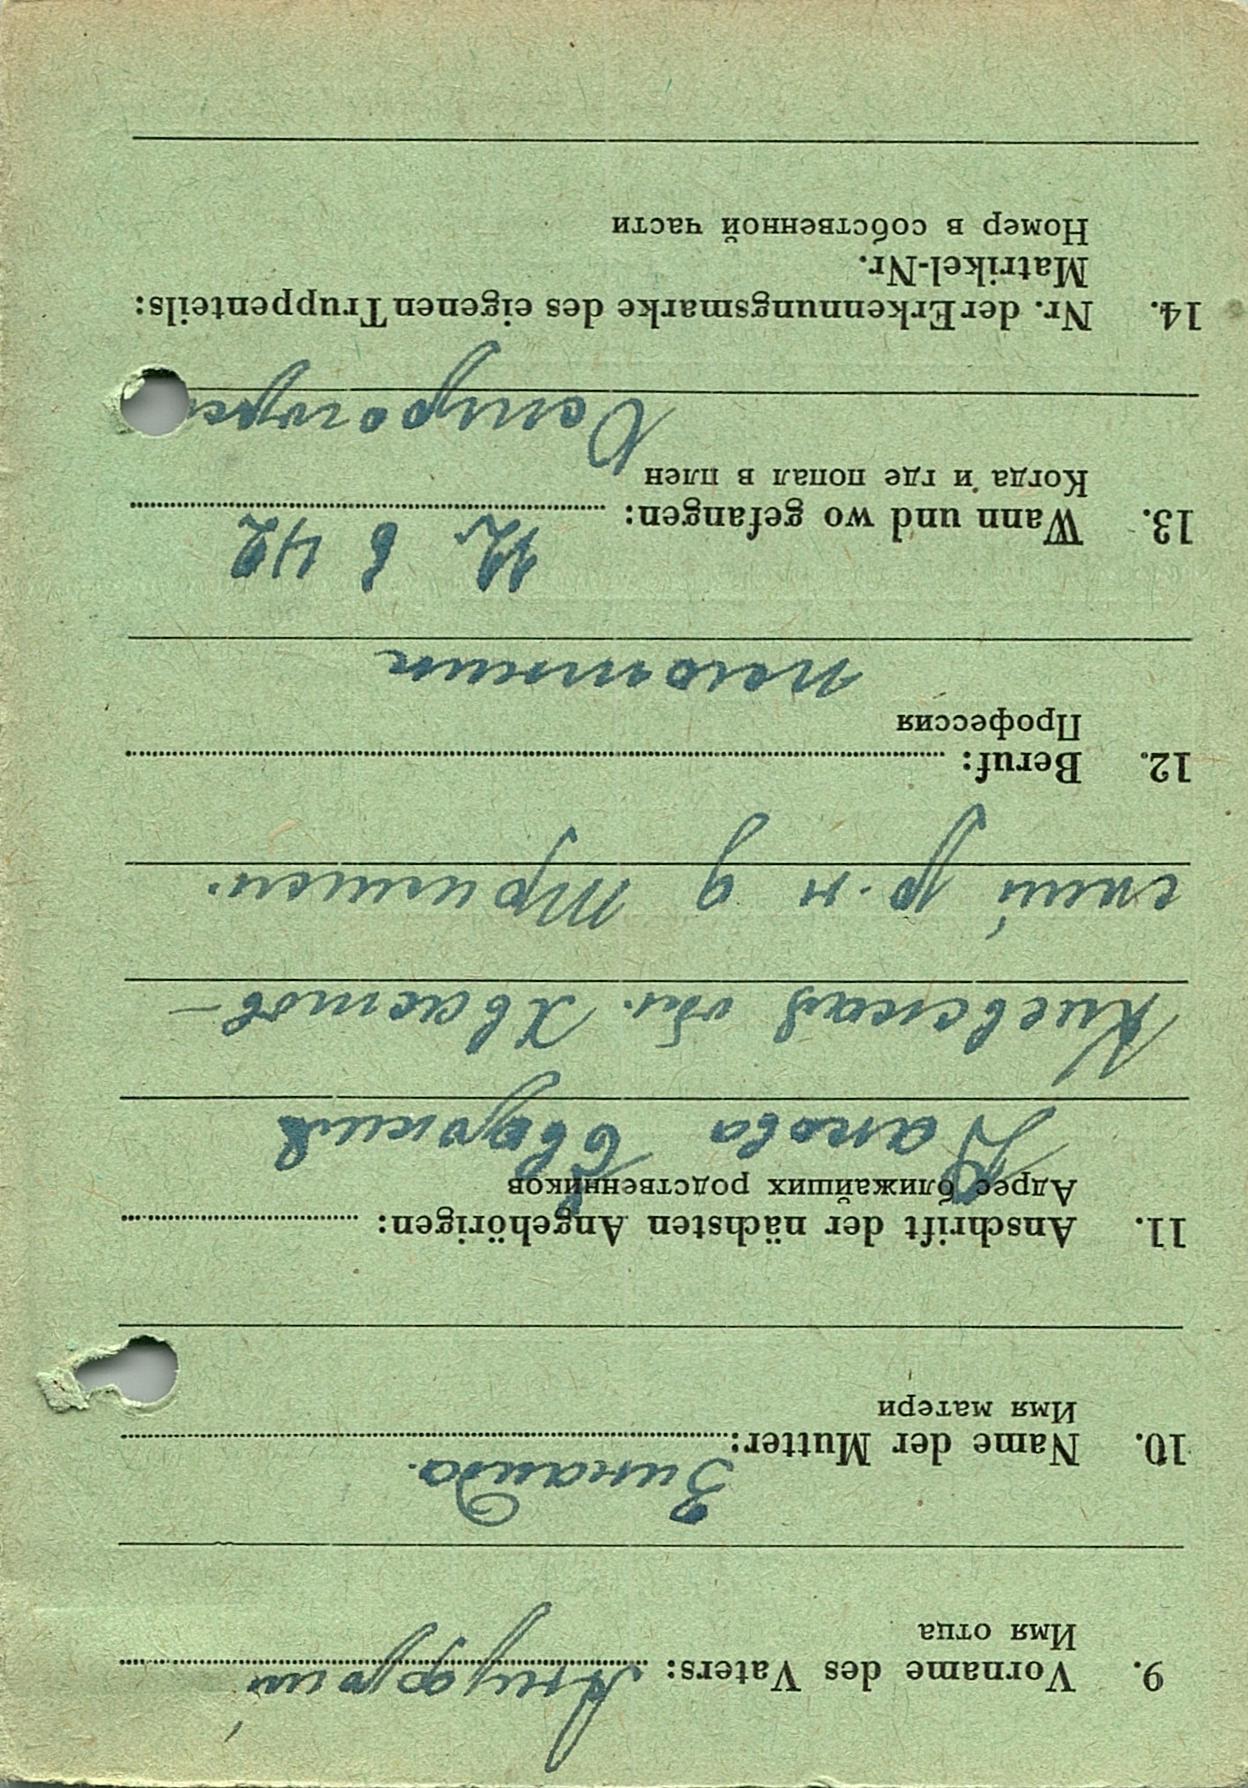 9. Vorname des Vaters: Ануфрий
Имя отца
10. Name der Mutter: Зинаида
Имя матери
11. Anschrift der nächsten Angehörigen:
Адрес ближайших родственников
Киевская обл. Хвастов-
ский р-н д
12. Beruf:
Профессия
плотник
13. Wann und wo gefangen: 12 6 42
Когда и где попал в плен
14. Nr. der Erkennungsmarke des eigenen Truppenteils:
Matrikel-Nr.
Номер в собственной части